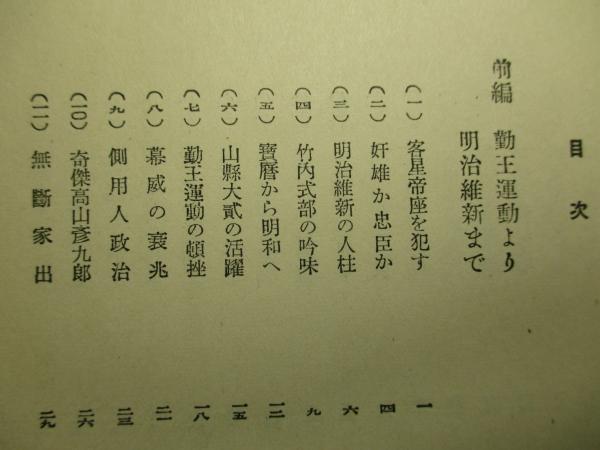 目次
前編 勤王運動より
明治維新まで
(一) 客星帝座を犯す 一
(二) 奸雄か忠臣か 四
(三) 明治維新の人柱 六
(四) 竹内式部の吟味 九
(五) 寶曆から明和へ 一二
(六) 山縣大貳の活躍 一五
(七) 勤王運動の頓挫 一八
(八) 幕威の衰兆 二一
(九) 側用人政治 二三
(一〇) 奇傑高山彥九郎 二六
(一一) 無斷家出 二九